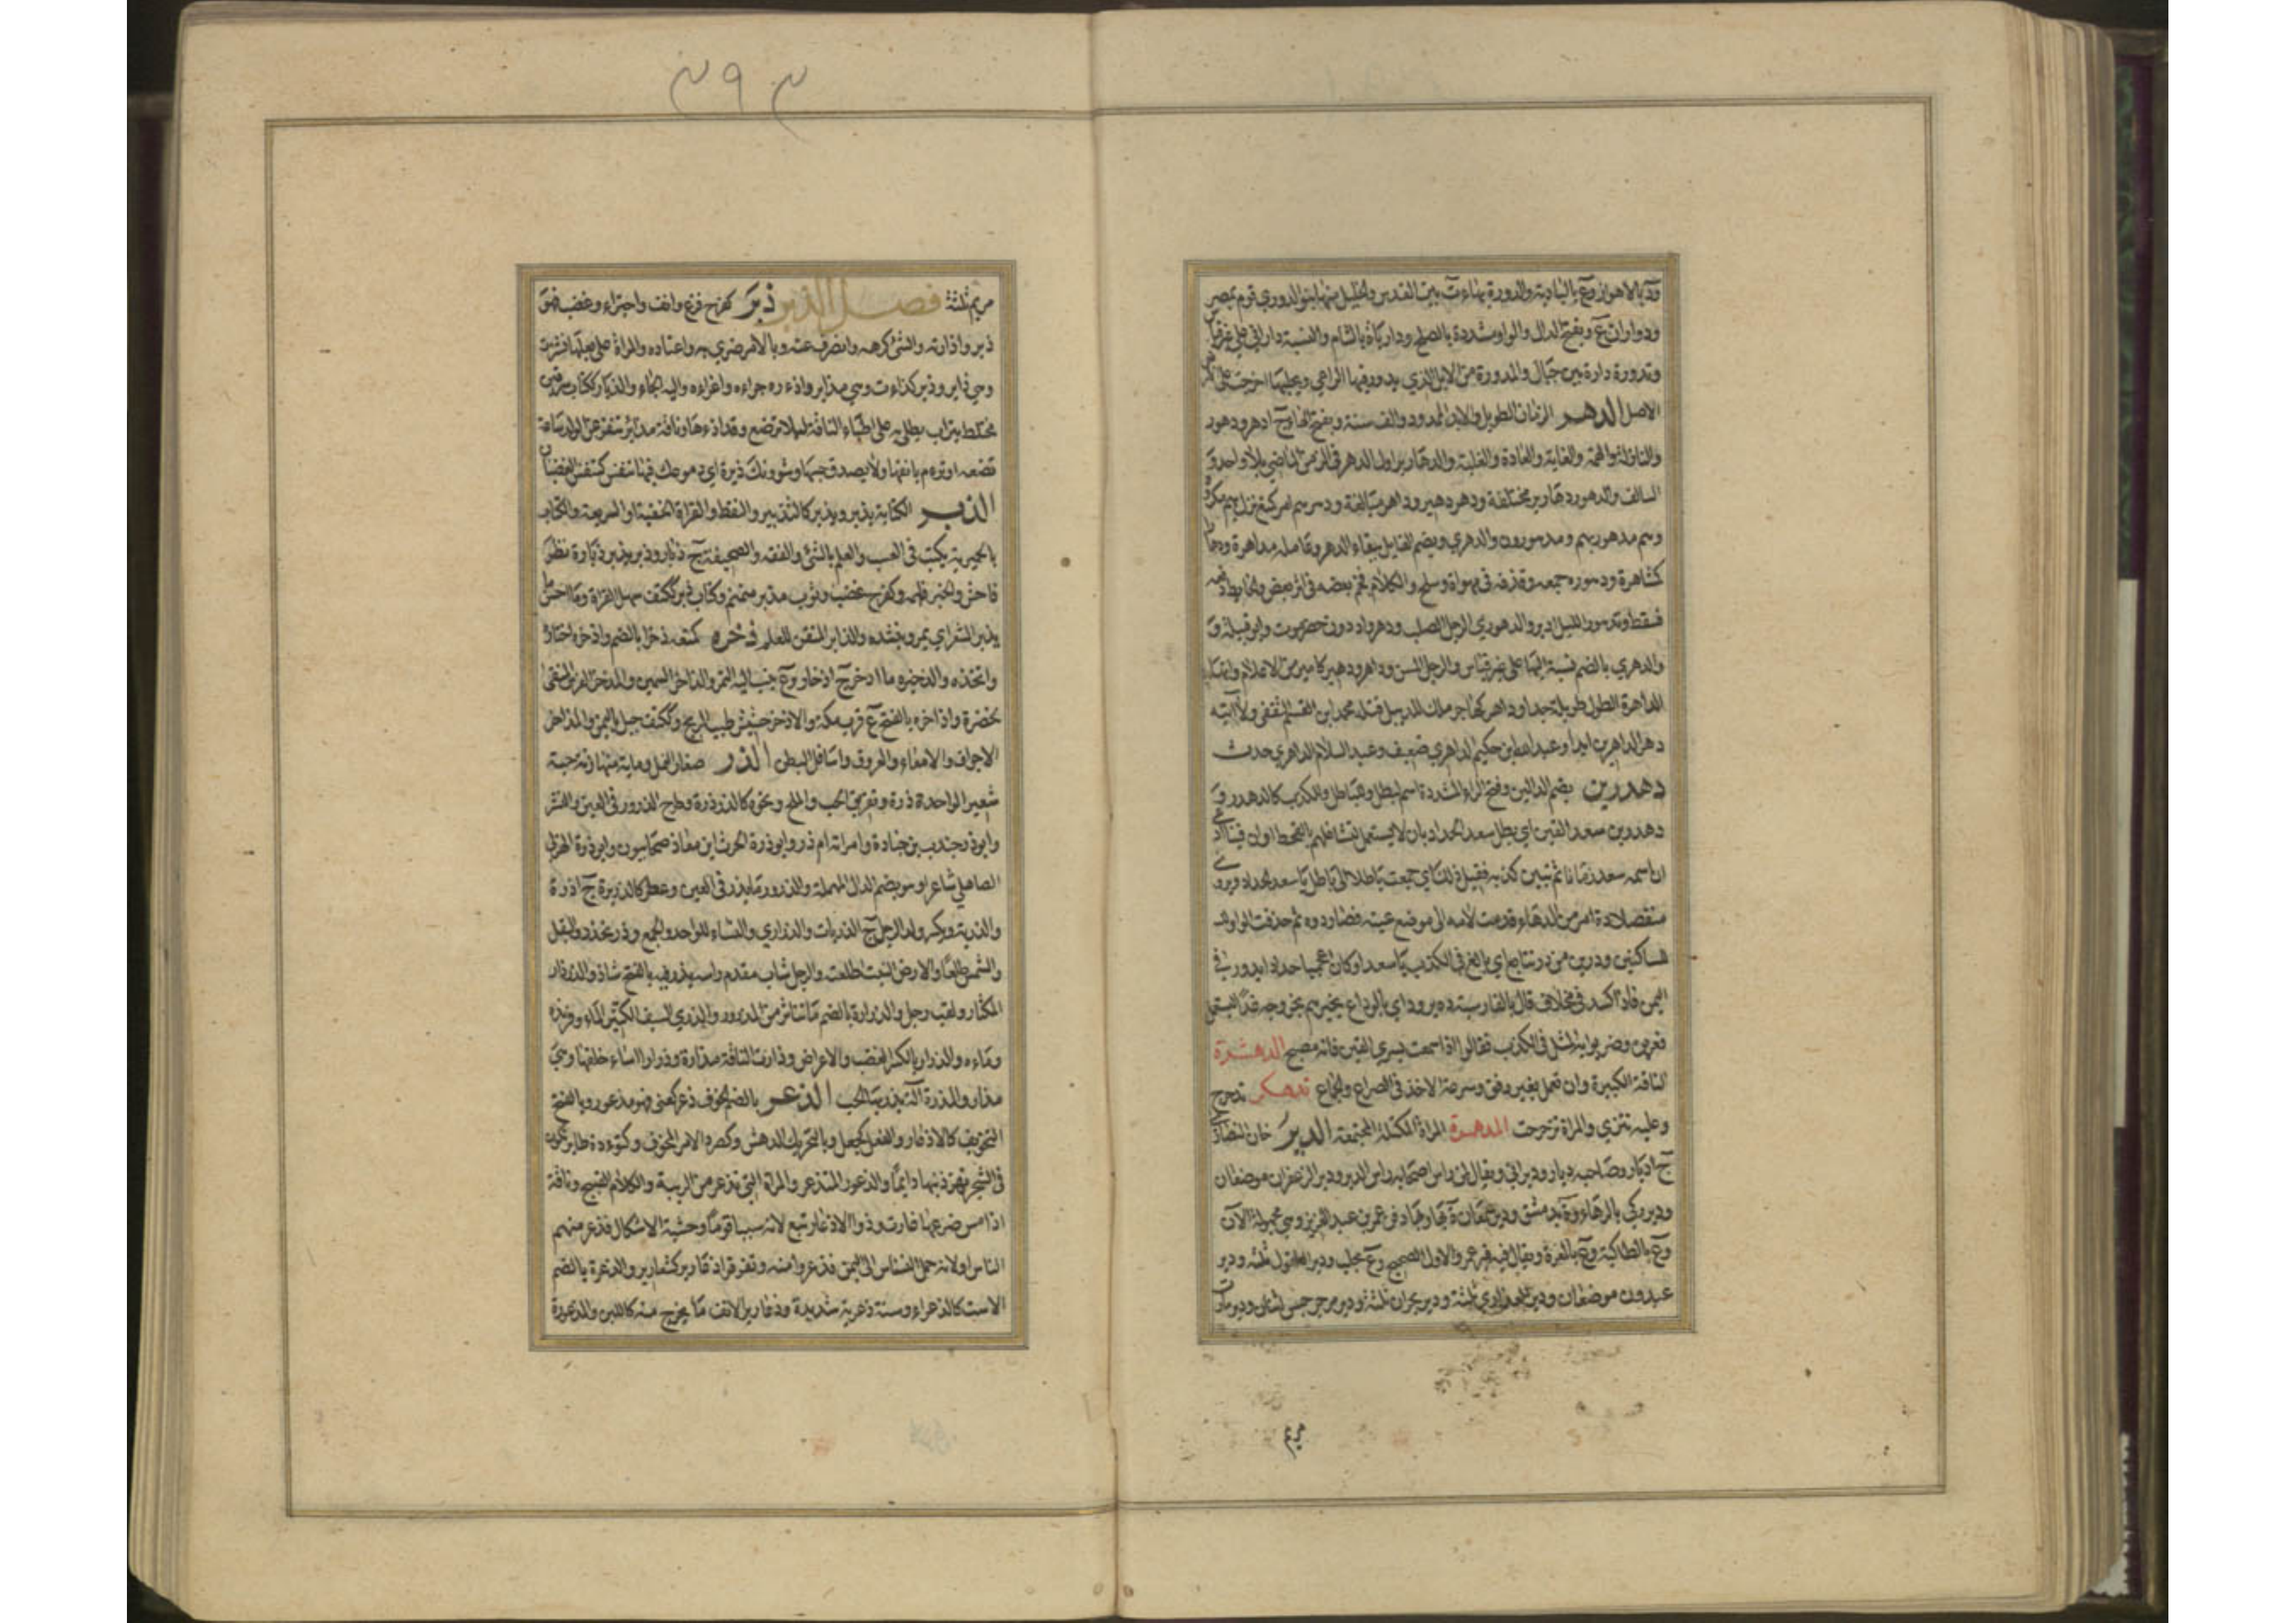 ود بالاهواز وع بالبادية والدورة بهاء ة بين القدس والخليل منها بنو الدوري قوم بمصر
ودواران ع وبفتح الدال والواو مشددة بالصلح وداريا ة بالشام والنسبة داراني على غير قياس
وتدورة دارة بين جبال والمدورة من الابل التي يدور فيها الراعي ويحلبها اخرجت على
الاصل الدهر الزمان الطويل والابد الممدود والف سنة وبفتح الهاء ج ادهر ودهور
والنازلة والهمة والغاية والعادة والغلبة والدهارير اول الدهر في الزمن الماضي بلا واحد و
السالف ودهور دهارير مختلفة ودهر دهير وداهر مبالغة ودهرهم امر كمنع نزل بهم مكروه
وهم مدهور بهم ومدهورون والدهري ويضم القايل ببقاء الدهر وعامله مداهرة ودهارا
كمشاهرة ودهوره جمعه وقذفه في مهواة وسلح والكلام فخم بعضه في اثر بعض والحايط دفعه
فسقط وتدهور الليل ادبر والدهوري الرجل الصلب ودهر واد دون حضرموت وابو قبيلة و
والدهري بالضم نسبة اليها على غير قياس والرجل المسن وداهر ودهير كامير من الاعلام
الداهرة الطول طويلة جدا وداهر كهاجر ملك الديبل قتله محمد ابن القسم الثقفي ولا آتيه
دهر الداهرين ابدا وعبد الله بن حكيم الداهري ضعيف وعبد السلام الداهري حدث
دهدرين بضم الدالين وفتح الراء المشددة اسم لبطل وللباطل وللكذب كالدهدر و
دهدرين سعد القين اي بطل سعد الحداد بان لا يستعمل لتشاغلهم بالقحط او ان قينا ادعى
ان اسمه سعد زمانا ثم تبين كذبه فقيل له ذلك اي جمعت باطلا الى باطل يا سعد الحداد ويروى
منفصلا ده امر من الدهاء قدمت لامه الى موضع عينه فصار دوه ثم حذفت الواو
للساكنين ودرين من در تتابع اي بالغ في الكذب يا سعد او كان اعجميا حدادا يدور في
اليمن فاذا كسد في مخلاف قال بالفارسية ده برود اي بالوداع يخبرهم بخروجه غدا ليستعمل
فعربوه وضربوا به المثل في الكذب فقالوا اذا سمعت بسرى القين فانه مصبح الدهشرة
الناقة الكبيرة وان تعمل بغير رفق وسرعة الاخذ في الصراع والجماع تدهكر تدحرج
وعليه تنزى والمراة ترجرجت المدهمرة المراة المكتلة المجتمعة الدير خان النصارى
ج اديار وصاحبه ديار وديراني ويقال لمن راس اصحابه راس الدير ودير الزعفران موضعان
ودير زكى بالرهاء وة بدمشق ودير سمعان ة بها وبها دفن عمر بن عبد العزيز وهي مجهولة الآن
وع بانطاكية وع بالمعرة ويقال فيه قبر عمر والاول الصحيح وع بحلب ودير العاقول ثلثة ودير
عبدون موضعان ودير العذارى ثلثة ودير نجران ثلثة ودير مرجرجس اثنان ودير مارت
مريم
٢٩٣
مريم ثلثة فصل الذال ذئر كفرح فزع وانف واجترء وغضب فهو
ذئر واذارته والشئ كرهه وانصرف عنه وبالامر ضري به واعتاده والمراة على بعلها نشزت
وهي ذاير وذئر كذاءرت وهي مذاير واذءره جراه واغراه واليه الجاه والذيار ككتاب سرقين
مختلط بتراب يطلى به على اطباء الناقة ليلا ترضع وقد ذءرها وناقة مذائر تنفر عن الولد ساعة
تضعه او ترءم بانفها ولا يصدق حبها وشوونك ذئرة اي دموعك فيها تنفش كتنفش الغضبان
الذبر الكتابة يذبر ويذبر كالتذبير والنقط والقراة الخفية او السريعة والكتاب
بالحميرية يكتب في العسب والعلم بالشئ والفقه والصحيفة ج ذبار وذبر يذبر ذبارة نظر
فاحسن والخبر فهمه وكفرح غضب وثوب مذبر منمنم وكتاب ذبر ككتف سهل القراة وما احسن
يذبر الشعر اي يمره وينشده والذابر المتقن للعلم ذخره كمنعه ذخرا بالضم واذخره اختاره
واتخذه والذخيره ما ادخر ج اذخار وع ينسب اليه التمر والذاخر السمين والمدخر الفرس المبقى
لحضره واذاخر بالفتح ع قرب مكة والاذخر حشيش طيب الريح وككتف جبل باليمن والمذاخر
الاجواف والامعاء والعروق واسافل البطن الذر صغار النمل ومائة منها زنة حبة
شعير الواحدة ذرة وتفريق الحب والملح ونحوه كالذرذرة وطرح الذرور في العين والنشر
وابو ذر جندب بن جنادة وامراته ام ذر وابو ذرة الحرث ابن معاذ صحابيون وابو ذرة الهذلي
الصاهلي شاعر او هو بضم الدال المهملة والذرور ما يذر في العين وعطر كالذريرة ج اذرة
والذرية ويكسر ولد الرجل ج الذريات والذراري والنساء للواحد والجمع وذر تخدد والبقل
والشمس طلعا والارض النبت اطلعت والرجل شاب مقدم راسه يذر فيه بالفتح شاذ والذرذار
المكثار ولقب رجل والذرارة بالضم ما تناثر من الذرور والذري السيف الكثير الماء وفرنده
وماءه والذرار بالكسر الغضب والاعراض وذارت الناقة مذارة وذرارا ساء خلقها وهي
مذار والمذرة آلة يذر بها الحب الذعر بالضم الخوف ذعر كعني فهو مذعور وبالفتح
التخويف كالاذعار والفعل كجعل وبالتحريك الدهش وكصرد الامر المخوف وكتؤدة طاير تكون
في الشجر تهز ذنبها دايما والذعور المتذعر والمراة التي تذعر من الريبة والكلام القبيح وناقة
اذا مس ضرعها غارت وذو الاذعار تبع لانه سبا قوما وحشة الاشكال فذعر منهم
الناس او لانه حمل النسناس الى اليمن فذعروا منه وتفرقوا ذعارير كشعارير والذعرة بالضم
الاست كالذعراء وسنة ذعرية شديدة وذعارير الانف ما يخرج منه كاللبن والمذعورة